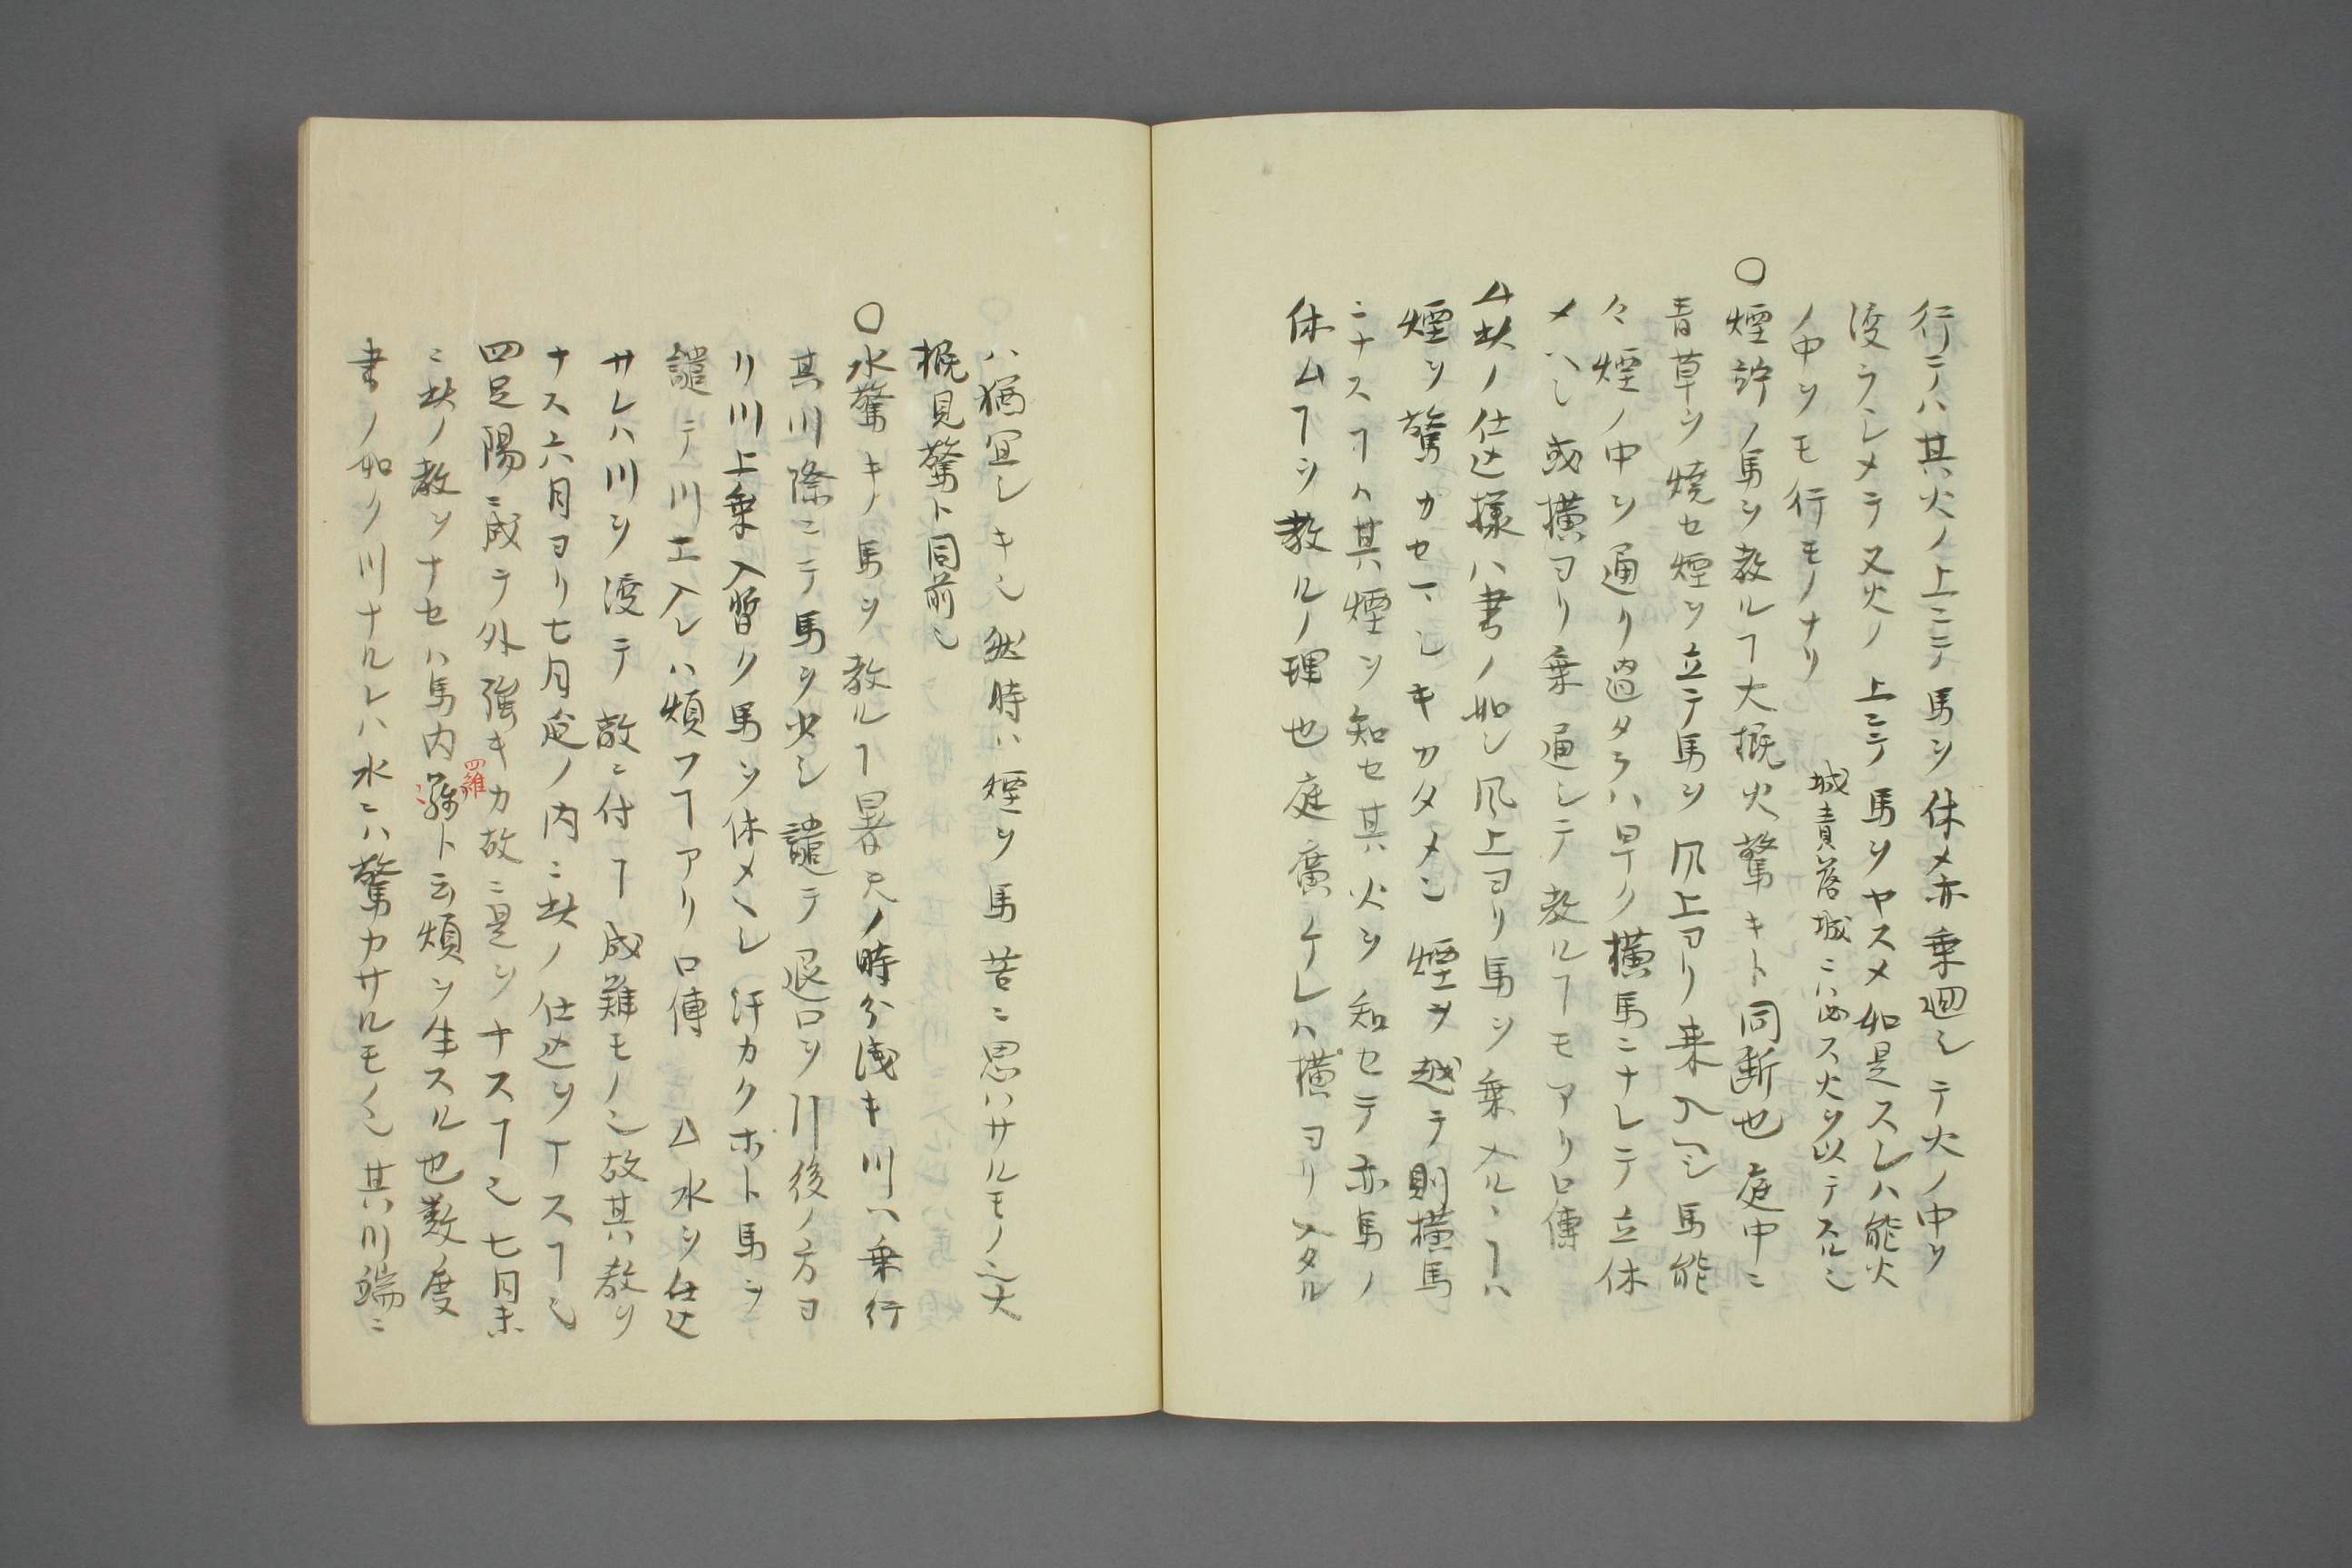 行テハ其火ノ上ニテ馬ヲ休メ亦乗廻シテ火ノ中ヲ
渡ラシメテ又火ノ上ニテ馬ヲヤスメ如是スレハ能火
ノ中ヲモ行モノナリ
城責落城ニハ必ス火ヲ以テスル也
○煙許ノ馬ヲ教ルヿ大概火驚キト同断也庭中ニ
青草ヲ焼セ煙ヲ立テ馬ヲ風上ヨリ乗入ヘシ馬能
々煙ノ中ヲ通リ過タラハ早ク横馬ニナシテ立休
メヘシ或横ヨリ乗通シテ教ルヿモアリ口傳
△此ノ仕込様ハ書ノ如シ風上ヨリ馬ヲ乗入ルヽヿハ
煙ヲ驚カセマシキカタメ也煙ヲ越テ則横馬
ニナスヿハ其煙ヲ知セ其火ヲ知セテ亦馬ノ
休ムヿヲ教ルノ理也庭廣ケレハ横ヨリ入タル
ハ猶冝シキ也然時ハ煙ヲ馬苦ニ思ハサルモノ也大
概見驚ト同前也
○水驚キノ馬ヲ教ルヿ暑天ノ時分浅キ川ヘ乗行
其川際ニテ馬ヲ少シ譴テ退口ヲ引後ノ方ヨ
リ川上乗入暫ク馬ヲ休メヘシ汗カクホト馬ヲ
譴テ川エ入レハ煩フヿアリ口傳　△水ヲ仕込
サレハ川ヲ渡テ敵ニ付ヿ成難モノ也故其教ヲ
ナス六月ヨリ七月迄ノ内ニ此ノ仕込ヲナスヿ也
四足陽ニ成テ外強キカ故ニ是ヲナスヿ也七月末
ニ此ノ教ヲナセハ馬内羅ト云煩ヲ生スル也数度
四羅
書ノ如ク川ナルレハ水ニハ驚カサルモノ也其川端ニ